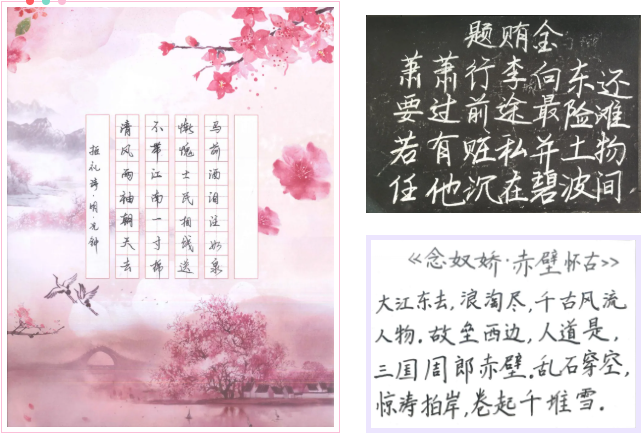 拒礼诗·明·况钟
清风两袖朝天去
不带江南一寸棉
惭愧士民相饯送
马前洒泪注如泉
题贿金
萧萧行李向东还
要过前途最险滩
若有赃私并土物
任他沉在碧波间
《念奴娇·赤壁怀古》
大江东去,浪淘尽,千古风流
人物。故垒西边,人道是,
三国周郎赤壁。乱石穿空,
惊涛拍岸,卷起千堆雪。